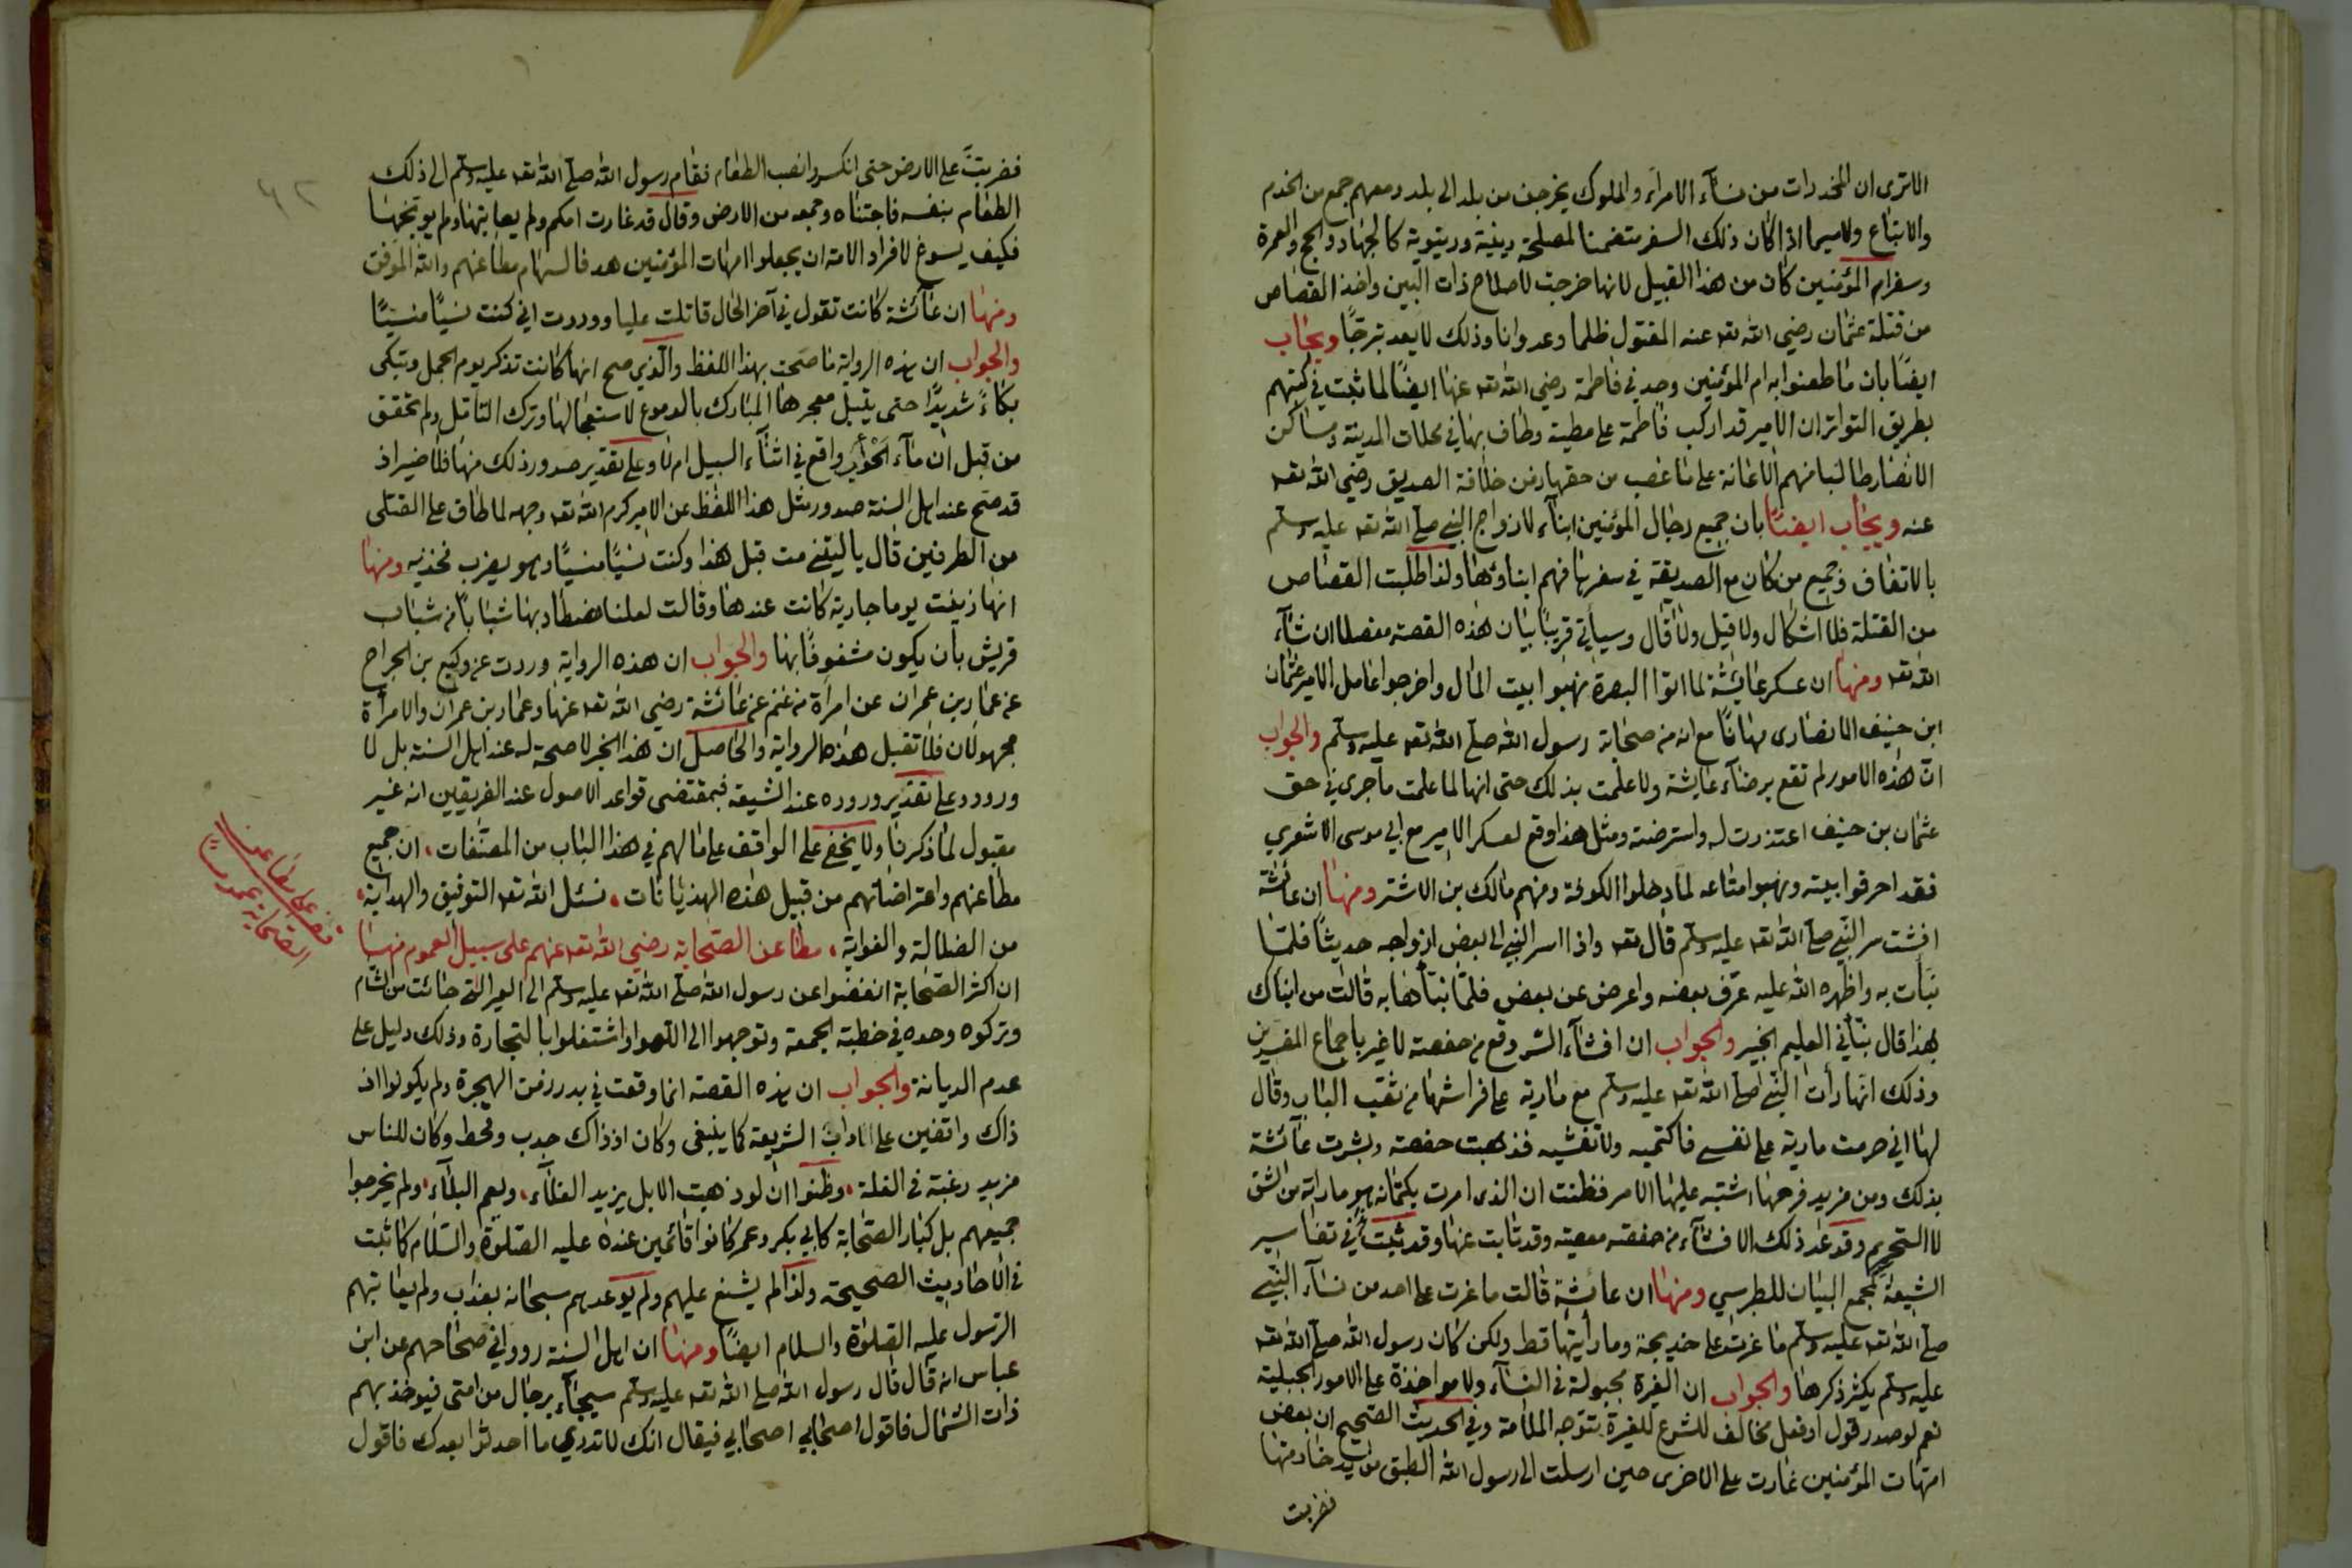 الا ترى ان المخدرات من نسآء الامرآء والملوك يخرجن من بلد الى بلد ومعهم جمع من الخدم
والاتباع ولاسيما اذا كان ذلك السفر متضمنا لمصلحة دينية ودنيوية كالجهاد والحج والعمرة
وسفر ام المؤمنين كان من هذا القبيل لانها خرجت لاصلاح ذات البين واخذ القصاص
من قتلة عثمان رضي الله تعه عنه المقتول ظلما وعدوانا وذلك لا يعد تبرجًا ويجاب
ايضًا بان ما طعنوا به ام المؤمنين وجد في فاطمة رضي الله تعه عنها ايضًا لما ثبت في كتبهم
بطريق التواتر ان الامير قد اركب فاطمة على مطية وطاف بها في محلات المدينة ومساكن
الانصار طالبا منهم الاعانة على ما غصب من حقها زمن خلافة الصديق رضي الله تعه
عنه ويجاب ايضًا بان جميع رجال المؤمنين ابنآء لازواج النبي صلى الله تعه عليه وسلم
بالاتفاق وجميع من كان مع الصديقة في سفرها فهم ابناؤها ولذا طلبت القصاص
من القتلة فلا اشكال ولا قيل ولا قال وسيأتي قريبًا بيان هذه القصة مفصلا ان شآء
الله تعه ومنها ان عسكر عايشة لما اتوا البصرة نهبوا بيت المال واخرجوا عامل الامير عثمان
ابن حنيف الانصارى مهانًا مع انه من صحابة رسول الله صلى الله تعه عليه وسلم والجواب
انّ هذه الامور لم تقع برضآء عايشة ولا علمت بذلك حتى انها لما علمت ما جرى في حق
عثمان بن حنيف اعتذرت له واسترضته ومثل هذا وقع لعسكر الامير مع ابي موسى الاشعري
فقد احرقوا بيته ونهبوا متاعه لما دخلوا الكوفة ومنهم مالك بن الاشتر ومنها ان عائشة
افشت سر النبي صلى الله تعه عليه وسلم قال تعه واذا اسر النبي الى بعض ازواجه حديثًا فلمّا
نبّأت به واظهره الله عليه عرّف بعضه واعرض عن بعض فلمّا نبّأها به قالت من انبأك
هذا قال نبّأني العليم الخبير والجواب ان افشآء السّر وقع من حفصة لا غير باجماع المفسرين
وذلك انها رأت النبي صلى الله تعه عليه وسلم مع مارية على فراشها من ثقب الباب وقال
لها اني حرمت مارية على نفسي فاكتميه ولا تفشيه فذهبت حفصة وبشرت عآئشة
بذلك ومن مزيد فرحها اشتبه عليها الامر فظنت ان الذى امرت بكتمانه هو ما راته من الشق
لا التحريم وقد عد ذلك الافشآء من حفصة معصية وقد تابت عنها وقد ثبت في تفاسير
الشيعة كمجمع البيان للطبرسي ومنها ان عائشة قالت ما غرت على احد من نسآء النبي
صلى الله تعه عليه وسلم ما غرت على خديجة وما رأيتها قط ولكن كان رسول الله صلى الله تعه
عليه وسلم يكثر ذكرها والجواب ان الغيرة مجبولة في النسآء ولا مواخذة على الامور الجبلية
نعم لو صدر قول او فعل مخالف للشرع للغيرة تتوجه الملامة وفي الحديث الصحيح ان بعض
امهات المؤمنين غارت على الاخرى حين ارسلت الى رسول الله الطبق من يد خادمتها
فضربت
فضربتَ على الارض حتى انكسر وانصب الطعام فقام رسول الله صلى الله تعه عليه وسلم الى ذلك
الطعام بنفسه فاجتناه وجمعه من الارض وقال قد غارت امكم ولم يعاتبها ولم يوبخها
فكيف يسوغ لافراد الامة ان يجعلوا امهات المؤمنين هدفا لسهام مطاعنهم والله الموفق
ومنها ان عآئشة كانت تقول في آخر الحال قاتلت عليا ووددت اني كنت نسيًا منسيًّا
والجواب ان هذه الرواية ما صحت بهذا اللفظ والذي صح انها كانت تذكر يوم الجمل وتبكى
بكاءً شديدًا حتى يتبل معجرها المبارك بالدموع لاستعجالها وترك التامل ولم تحقق
من قبل ان مآء الحَوْأب واقع في اثنآء السبيل ام لا وعلى تقدير صدور ذلك منها فلا ضير اذ
قد صح عند اهل السنة صدور مثل هذا اللفظ عن الامير كرم الله تعه وجهه لما طاف على القتلى
من الطرفين قال يا ليتني مت قبل هذا وكنت نسيًا منسيًّا وهو يضرب فخذيه ومنها
انها زينت يوما جارية كانت عندها وقالت لعلنا نصطاد بها شابًا من شباب
قريش بان يكون مشغوفًا بها والجواب ان هذه الرواية وردت عن وكيع بن الجراح
عن عمار بن عمران عن امرأة من غنم عن عائشة رضي الله تعه عنها وعمار بن عمران والامرأة
مجهولان فلا تقبل هذه الرواية والحاصل ان هذا الخبر لا صحة له عند اهل السنة بل لا
ورود وعلى تقدير وروده عند الشيعة فبمقتضى قواعد الاصول عند الفريقين انه غير
مقبول لما ذكرنا ولا يخفى على الواقف على ما لهم في هذا الباب من المصنّفات ، ان جميع
مطاعنهم واعتراضاتهم من قبيل هذه الهذيانات ، نسئل الله تعه التوفيق والهداية ،
من الضلالة والغواية ، مطاعن الصحابة رضي الله تعه عنهم على سبيل العموم منها
ان اكثر الصحابة انفضوا عن رسول الله صلى الله تعه عليه وسلم الى العير التي جائت من الشام
وتركوه وحده في خطبة الجمعة وتوجهوا الى اللهو واشتغلوا بالتجارة وذلك دليل على
عدم الديانة والجواب ان هذه القصة انما وقعت في بدء زمن الهجرة ولم يكونوا اذ
ذاك واقفين على الاداب الشريعة كما ينبغى وكان اذ ذاك جدب وقحط وكان للناس
مزيد رغبة في الغلة ، وظنوا ان لو ذهبت الابل يزيد الغلآء ، ويعم البلآء ، ولم يخرجوا
جميعهم بل كبار الصحابة كابي بكر وعمر كانوا قائمين عنده عليه الصلوة والسلام كما ثبت
في الاحاديث الصحيحة ولذا لم يشنع عليهم ولم يوعدهم سبحانه بعذاب ولم يعاتبهم
الرسول عليه الصلوة والسلام ايضًا ومنها ان اهل السنة رووا في صحاحهم عن ابن
عباس انه قال قال رسول الله صلى الله تعه عليه وسلم سيجآء برجال من امتى فيوخذ بهم
ذات الشمال فاقول اصحابي اصحابي فيقال انك لا تدري ما احدثوا بعدك فاقول
الصحابة عموما